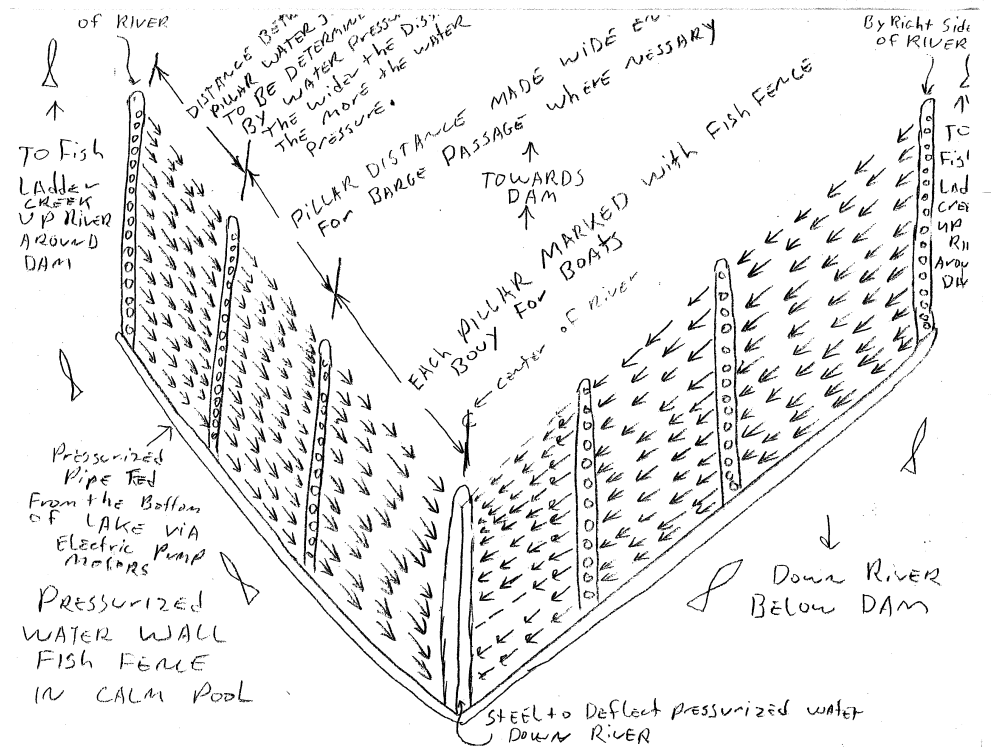 OF RIVER
DISTANCE BETW
PILLAR WATER J
TO BE DETERMINE
BY WATER PRESSU
THE WIDER THE DIST
THE MORE THE WATER
PRESSURE.
PILLAR DISTANCE MADE WIDE EN
FOR BARGE PASSAGE WHERE NESSARY
TOWARDS
DAM
EACH PILLAR MARKED with FISH FENCE
BOUY FOR BOATS
CENTER OF RIVER
By Right Side
OF RIVER
TO Fish
LAdder
CREEK
UP RIVER
AROUND
DAM
TO
Fisl
LAd
CREE
UP
RI
AROU
DA
Pressurized
Pipe Fed
From the Bottom
OF LAKE VIA
Electric Pump
MOTORS
PRESSURIZED
WATER WALL
FISH FENCE
IN CALM POOL
DOWN RIVER
BELOW DAM
STEEL to Deflect pressurized WATER
DOWN RIVER